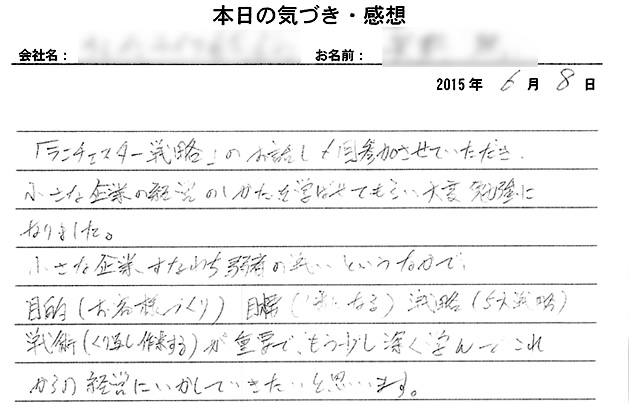 本日の気づき・感想
会社名: お名前:
2015年 6月 8日
「ランチェスター戦略」のお話し 回参加させていただき、
小さな企業の経営のしかたを学ばせてもらい大変勉強に
なりました。
小さな企業、すなわち弱者の戦いというなかで、
目的(お客様づくり) 目標( になる) 戦略(5大戦略)
戦術(くり返し作業する)が重要で、もう少し深く学んでこれ
からの経営にいかしていきたいと思います。